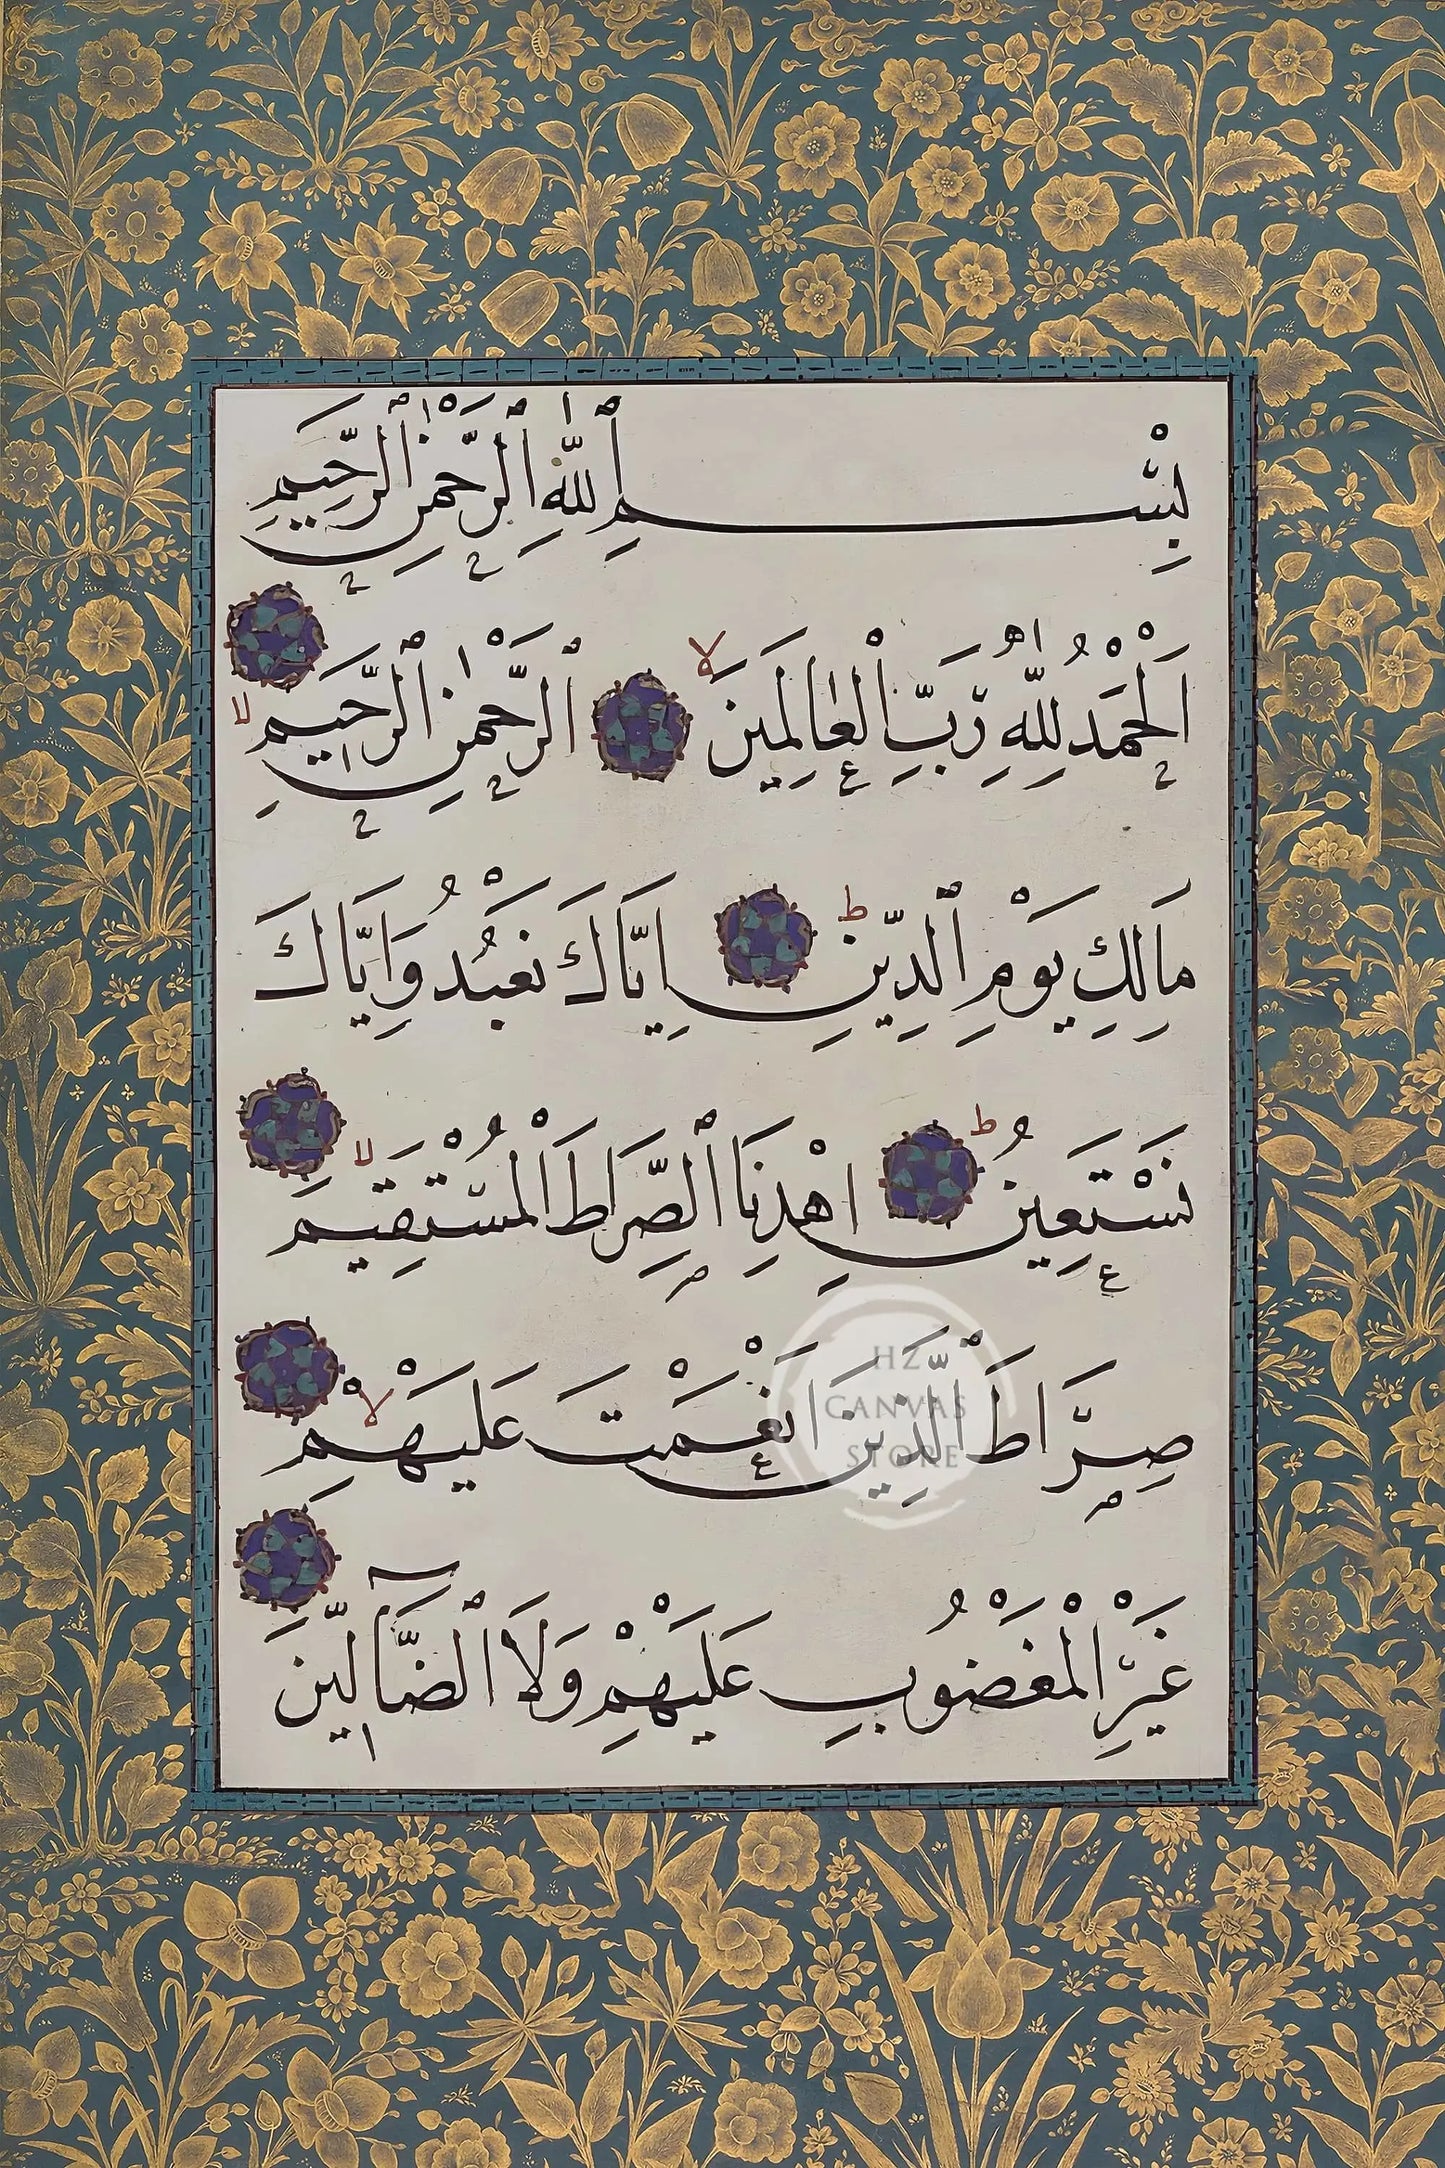 بِسْمِ ٱللّٰهِ ٱلرَّحْمٰنِ ٱلرَّحِيمِ
اَلْحَمْدُ لِلّٰهِ رَبِّ الْعٰالَمِينَ لا ٱلرَّحْمٰنِ ٱلرَّحِيمِ لا
مَالِكِ يَوْمِ ٱلدِّينِ ط اِيَّاكَ نَعْبُدُ وَاِيَّاكَ
نَسْتَعِينُ ط اِهْدِنَا ٱلصِّرَاطَ الْمُسْتَقِيمَ لا
صِرَاطَ ٱلَّذِينَ اَنْعَمْتَ عَلَيْهِمْ لا
غَيْرِ الْمَغْضُوبِ عَلَيْهِمْ وَلَا ٱلضَّآلِّينَ
HZ
CANVAS
STORE